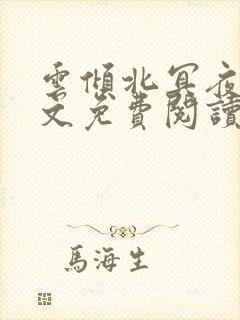 雲傾北冥夜
文免費閱讀
馬海生